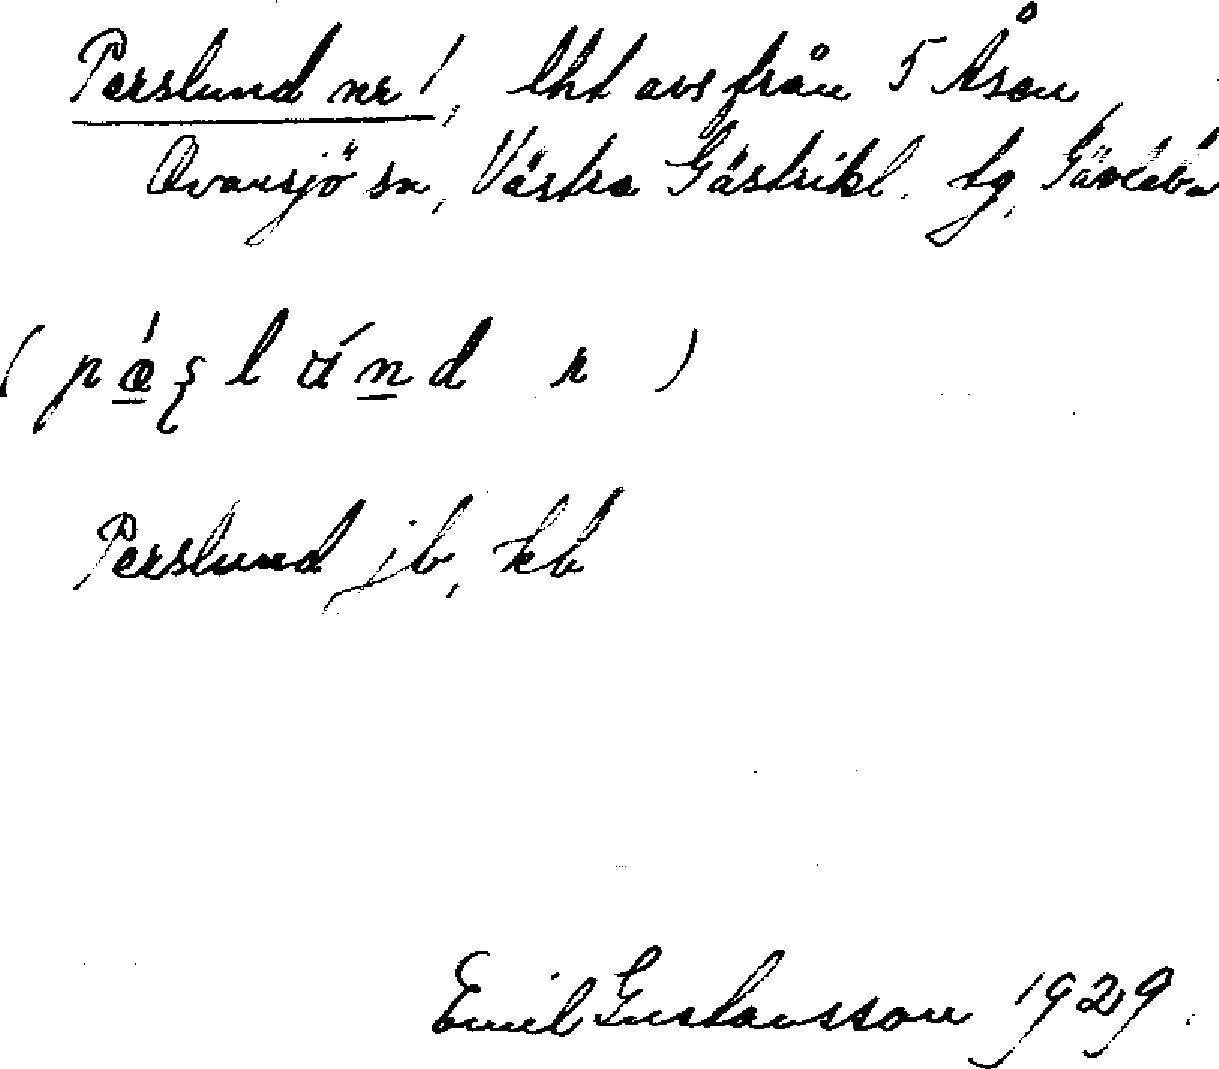 Perslund nr 1, lht avs från 5 Åsen
Ovansjö sn, Västra Gästrikl. tg, Gävleb.
(p ǽ ʂ l ú n d r)
Perslund jb, kb
Emil Gustavsson 1929.